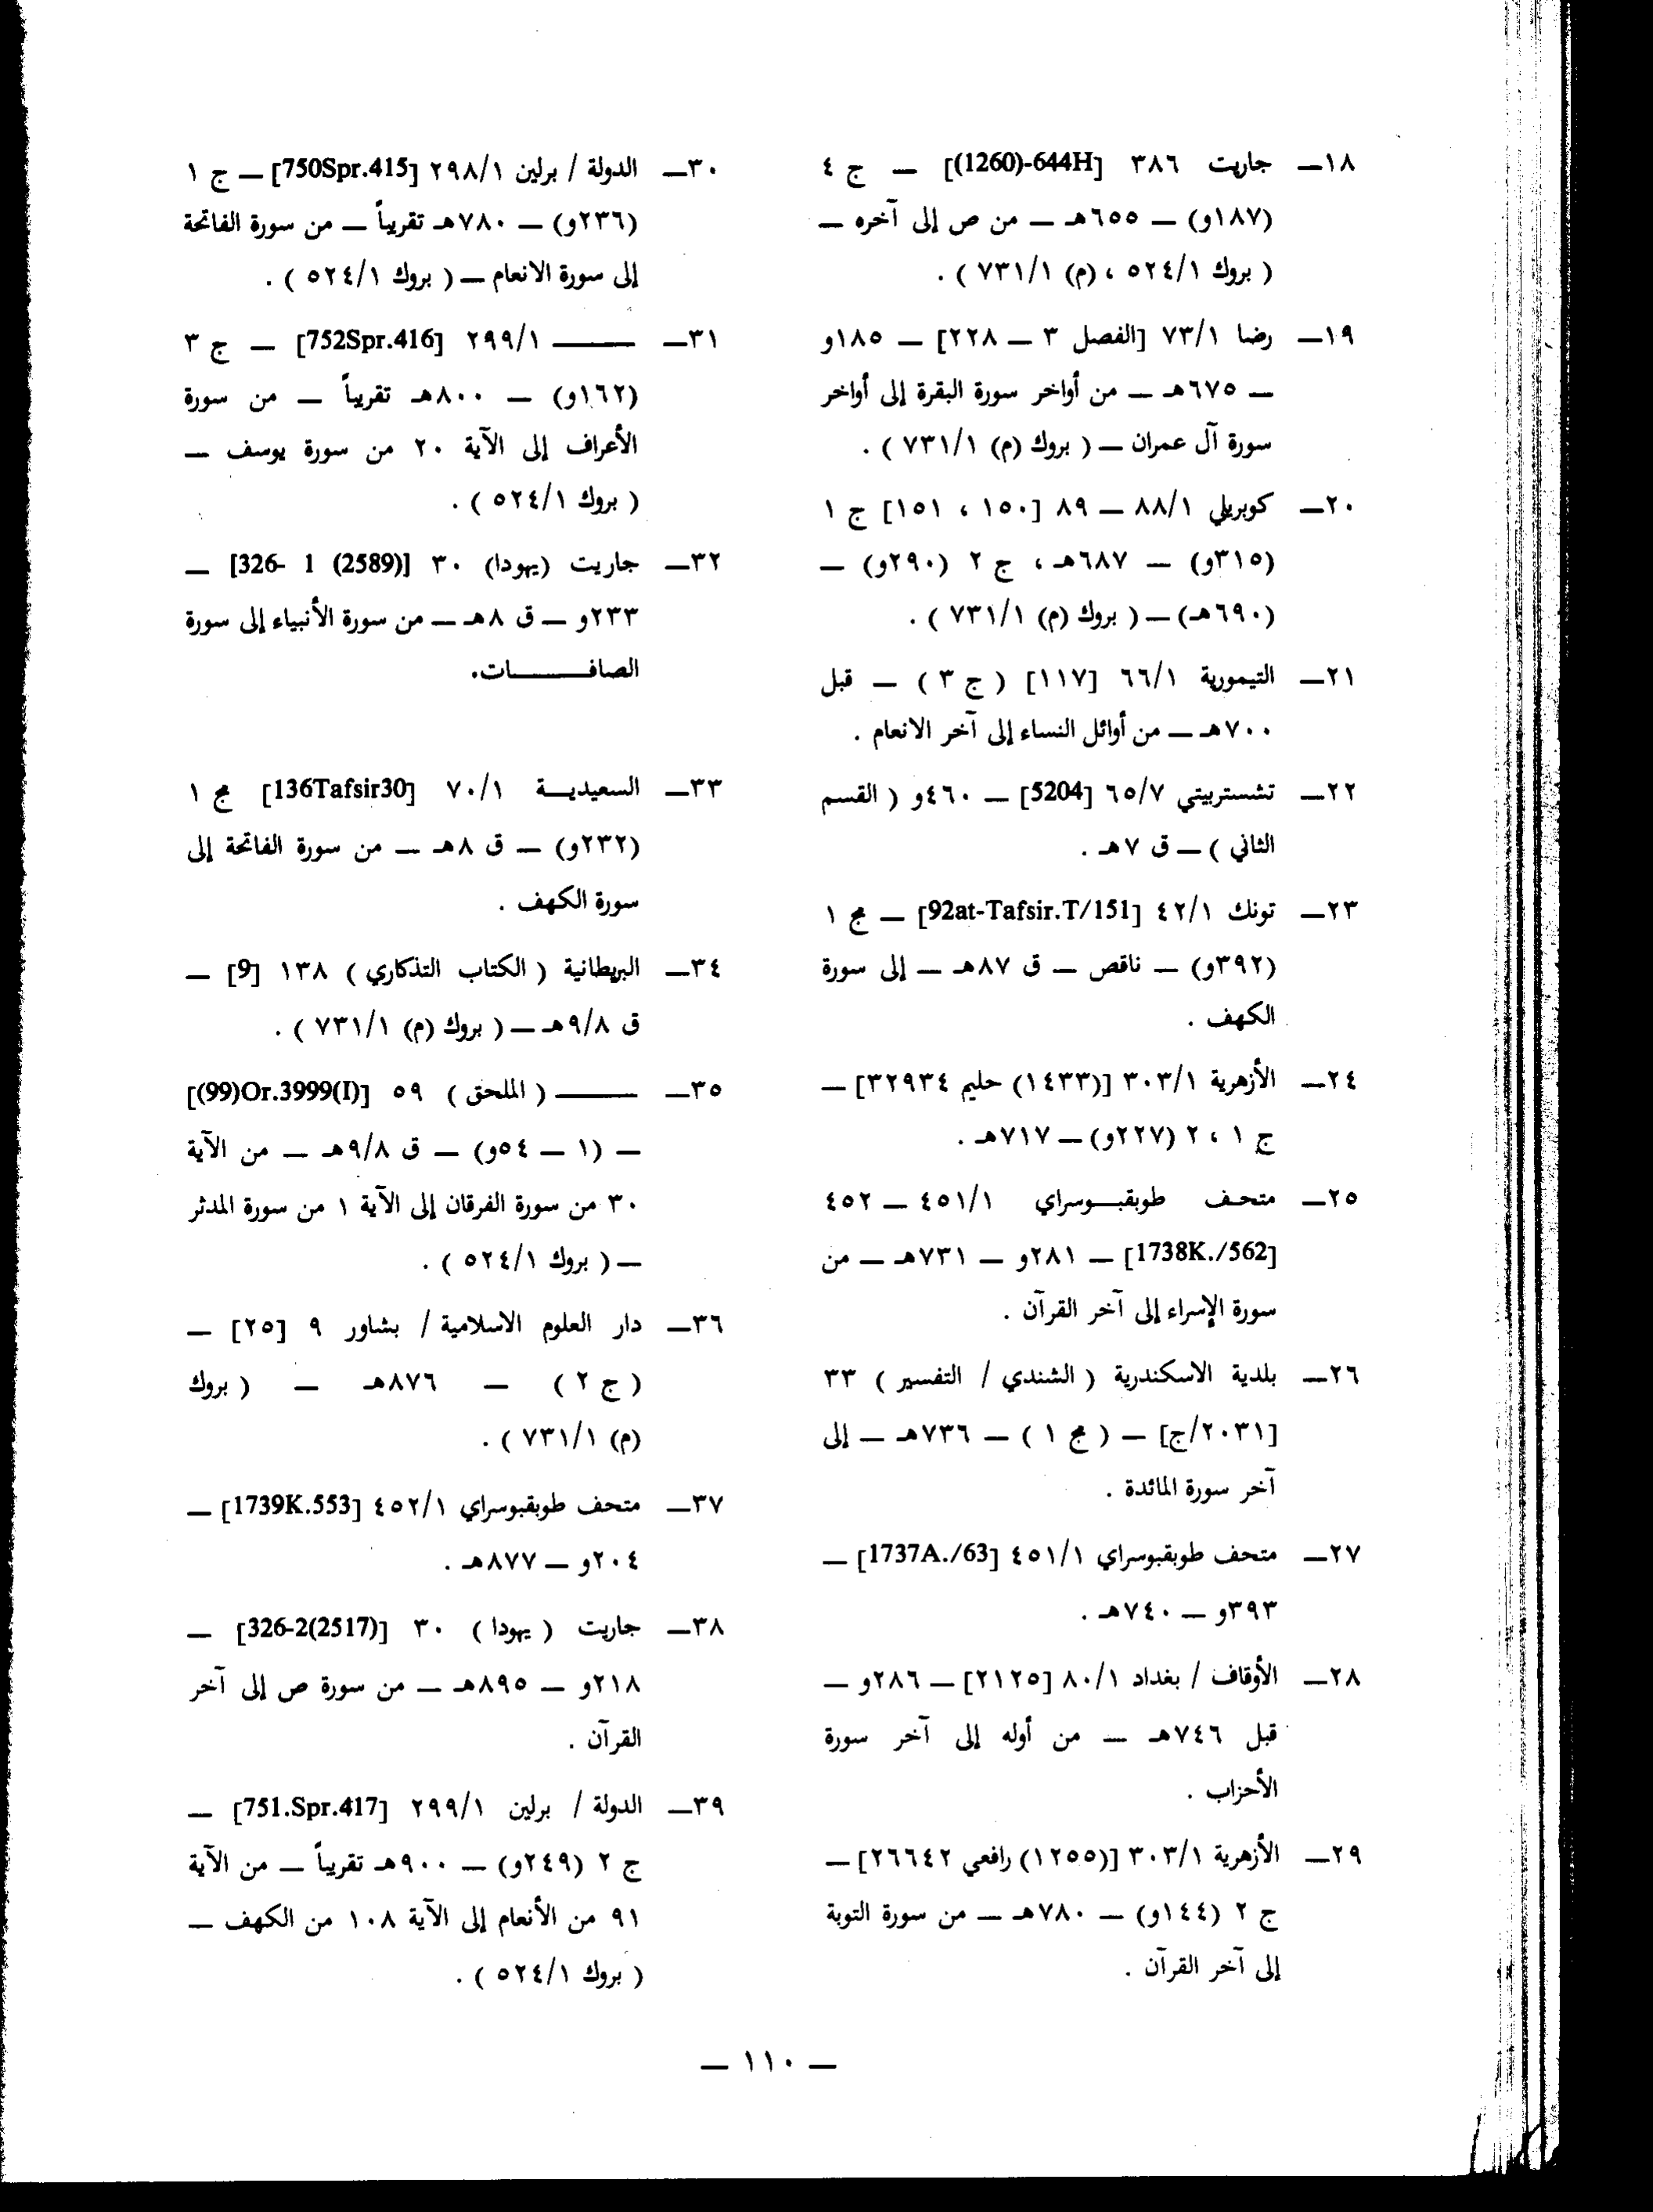 ١٨ــ جاريت ٣٨٦ [644H-(1260)] ــ ج ٤
(١٨٧و) ــ ٦٥٥هـ ــ من ص إلى آخره ــ
( بروك ٥٢٤/١ ، (م) ٧٣١/١ ) .
١٩ــ رضا ٧٣/١ [الفصل ٣ ــ ٢٢٨] ــ ١٨٥و
ــ ٦٧٥هـ ــ من أواخر سورة البقرة إلى أواخر
سورة آل عمران ــ ( بروك (م) ٧٣١/١ ) .
٢٠ــ كوبريلي ٨٨/١ ــ ٨٩ [١٥٠ ، ١٥١] ج ١
(٣١٥و) ــ ٦٨٧هـ ، ج ٢ (٢٩٠و) ــ
(٦٩٠هـ) ــ ( بروك (م) ٧٣١/١ ) .
٢١ــ التيمورية ٦٦/١ [١١٧] ( ج ٣ ) ــ قبل
٧٠٠هـ ــ من أوائل النساء إلى آخر الانعام .
٢٢ــ تشستربيتي ٦٥/٧ [5204] ــ ٤٦٠و ( القسم
الثاني ) ــ ق ٧هـ .
٢٣ــ تونك ٤٢/١ [92at-Tafsir.T/151] ــ مج ١
(٣٩٢و) ــ ناقص ــ ق ٨٧هـ ــ إلى سورة
الكهف .
٢٤ــ الأزهرية ٣٠٣/١ [(١٤٣٣) حليم ٣٢٩٣٤] ــ
ج ١ ، ٢ (٢٢٧و) ــ ٧١٧هـ .
٢٥ــ متحف طوبقبوسراي ٤٥١/١ ــ ٤٥٢
[1738K./562] ــ ٢٨١و ــ ٧٣١هـ ــ من
سورة الإسراء إلى آخر القرآن .
٢٦ــ بلدية الاسكندرية ( الشندي / التفسير ) ٣٣
[٢٠٣١/ج] ــ ( مج ١ ) ــ ٧٣٦هـ ــ إلى
آخر سورة المائدة .
٢٧ــ متحف طوبقبوسراي ٤٥١/١ [1737A./63] ــ
٣٩٣و ــ ٧٤٠هـ .
٢٨ــ الأوقاف / بغداد ٨٠/١ [٢١٢٥] ــ ٢٨٦و ــ
قبل ٧٤٦هـ ــ من أوله إلى آخر سورة
الأحزاب .
٢٩ــ الأزهرية ٣٠٣/١ [(١٢٥٥) رافعي ٢٦٦٤٢] ــ
ج ٢ (١٤٤و) ــ ٧٨٠هـ ــ من سورة التوبة
إلى آخر القرآن .
٣٠ــ الدولة / برلين ٢٩٨/١ [750Spr.415] ــ ج ١
(٢٣٦و) ــ ٧٨٠هـ تقريباً ــ من سورة الفاتحة
إلى سورة الانعام ــ ( بروك ٥٢٤/١ ) .
٣١ــ ــــــــ ٢٩٩/١ [752Spr.416] ــ ج ٣
(١٦٢و) ــ ٨٠٠هـ تقريباً ــ من سورة
الأعراف إلى الآية ٢٠ من سورة يوسف ــ
( بروك ٥٢٤/١ ) .
٣٢ــ جاريت (يهودا) ٣٠ [326- 1 (2589)] ــ
٢٣٣و ــ ق ٨هـ ــ من سورة الأنبياء إلى سورة
الصافــــــات.
٣٣ــ السعيديــة ٧٠/١ [136Tafsir30] مج ١
(٢٣٢و) ــ ق ٨هـ ــ من سورة الفاتحة إلى
سورة الكهف .
٣٤ــ البريطانية ( الكتاب التذكاري ) ١٣٨ [9] ــ
ق ٩/٨هـ ــ ( بروك (م) ٧٣١/١ ) .
٣٥ــ ــــــــ ( الملحق ) ٥٩ [(99)Or.3999(I)]
ــ (١ ــ ٥٤و) ــ ق ٩/٨هـ ــ من الآية
٣٠ من سورة الفرقان إلى الآية ١ من سورة المدثر
ــ ( بروك ٥٢٤/١ ) .
٣٦ــ دار العلوم الاسلامية / بشاور ٩ [٢٥] ــ
( ج ٢ ) ــ ٨٧٦هـ ــ ( بروك
(م) ٧٣١/١ ) .
٣٧ــ متحف طوبقبوسراي ٤٥٢/١ [1739K.553] ــ
٢٠٤و ــ ٨٧٧هـ .
٣٨ــ جاريت ( يهودا ) ٣٠ [326-2(2517)] ــ
٢١٨و ــ ٨٩٥هـ ــ من سورة ص إلى آخر
القرآن .
٣٩ــ الدولة / برلين ٢٩٩/١ [751.Spr.417] ــ
ج ٢ (٢٤٩و) ــ ٩٠٠هـ تقريباً ــ من الآية
٩١ من الأنعام إلى الآية ١٠٨ من الكهف ــ
( بروك ٥٢٤/١ ) .
ــ ١١٠ ــ